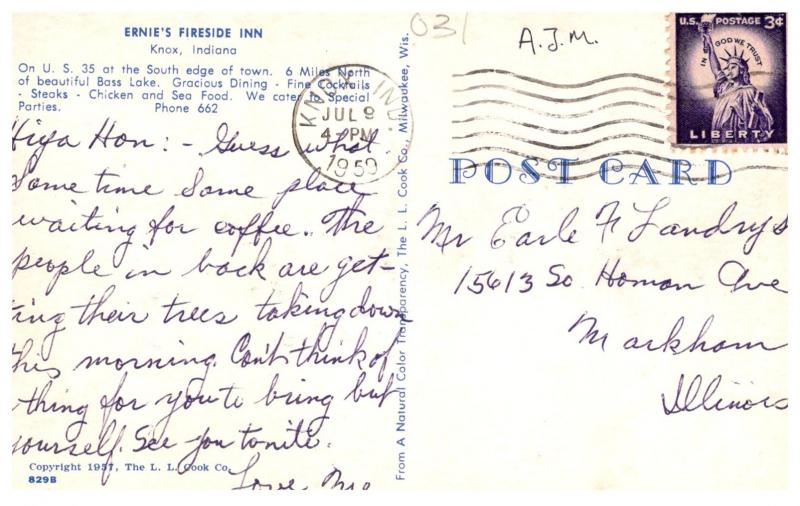 ERNIE'S FIRESIDE INN
Knox, Indiana
On U. S. 35 at the South edge of town. 6 Miles North
of beautiful Bass Lake. Gracious Dining - Fine Cocktails
- Steaks - Chicken and Sea Food. We cater to Special
Parties. Phone 662
Hiya Hon: - Guess what.
Some time Same place
waiting for coffee.. The
people in back are get-
ting their trees taking down
this morning. Can't think of
thing for you to bring but
yourself. See you tonite.
Love Me
Copyright 1957, The L. L. Cook Co.
829B
From A Natural Color Transparency, The L. L. Cook Co., Milwaukee, Wis.
KNOX, IND.
JUL 9
4 PM
1959
031
A.J.M.
U.S. POSTAGE 3¢
IN GOD WE TRUST
LIBERTY
POST CARD
Mr Earle F Landrys
15613 So. Homan Ave
Markham
Illinois